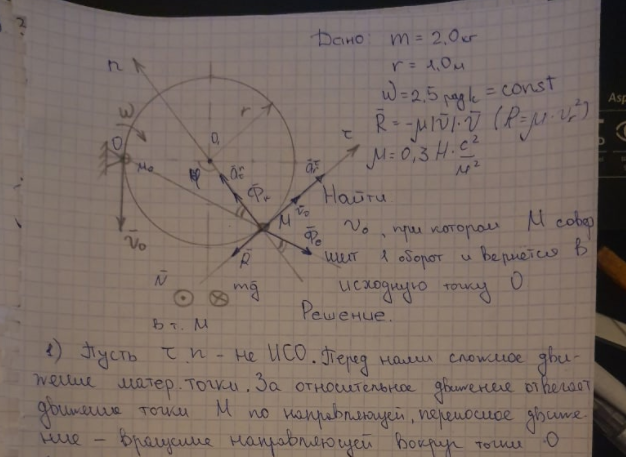 Дано: m = 2,0 кг
r = 1,0 м
ω = 2,5 рад/с = const
R̄ = -μ|v̄|·v̄ (R = μ·v_r²)
μ = 0,3 Н·с²/м²
Найти
v₀, при котором M совер
шит 1 оборот и вернется в
исходную точку O
Решение.
n
ω
O
M₀
v̄₀
r
φ
Φ̄c
M
R̄
τ
N̄
mḡ
в т. M
1) Пусть τ, n - не ИСО. Перед нами сложное дви-
жение матер. точки. За относительное движение отвечает
движение точки M по направляющей, переносное движе-
ние – вращение направляющей вокруг точки O